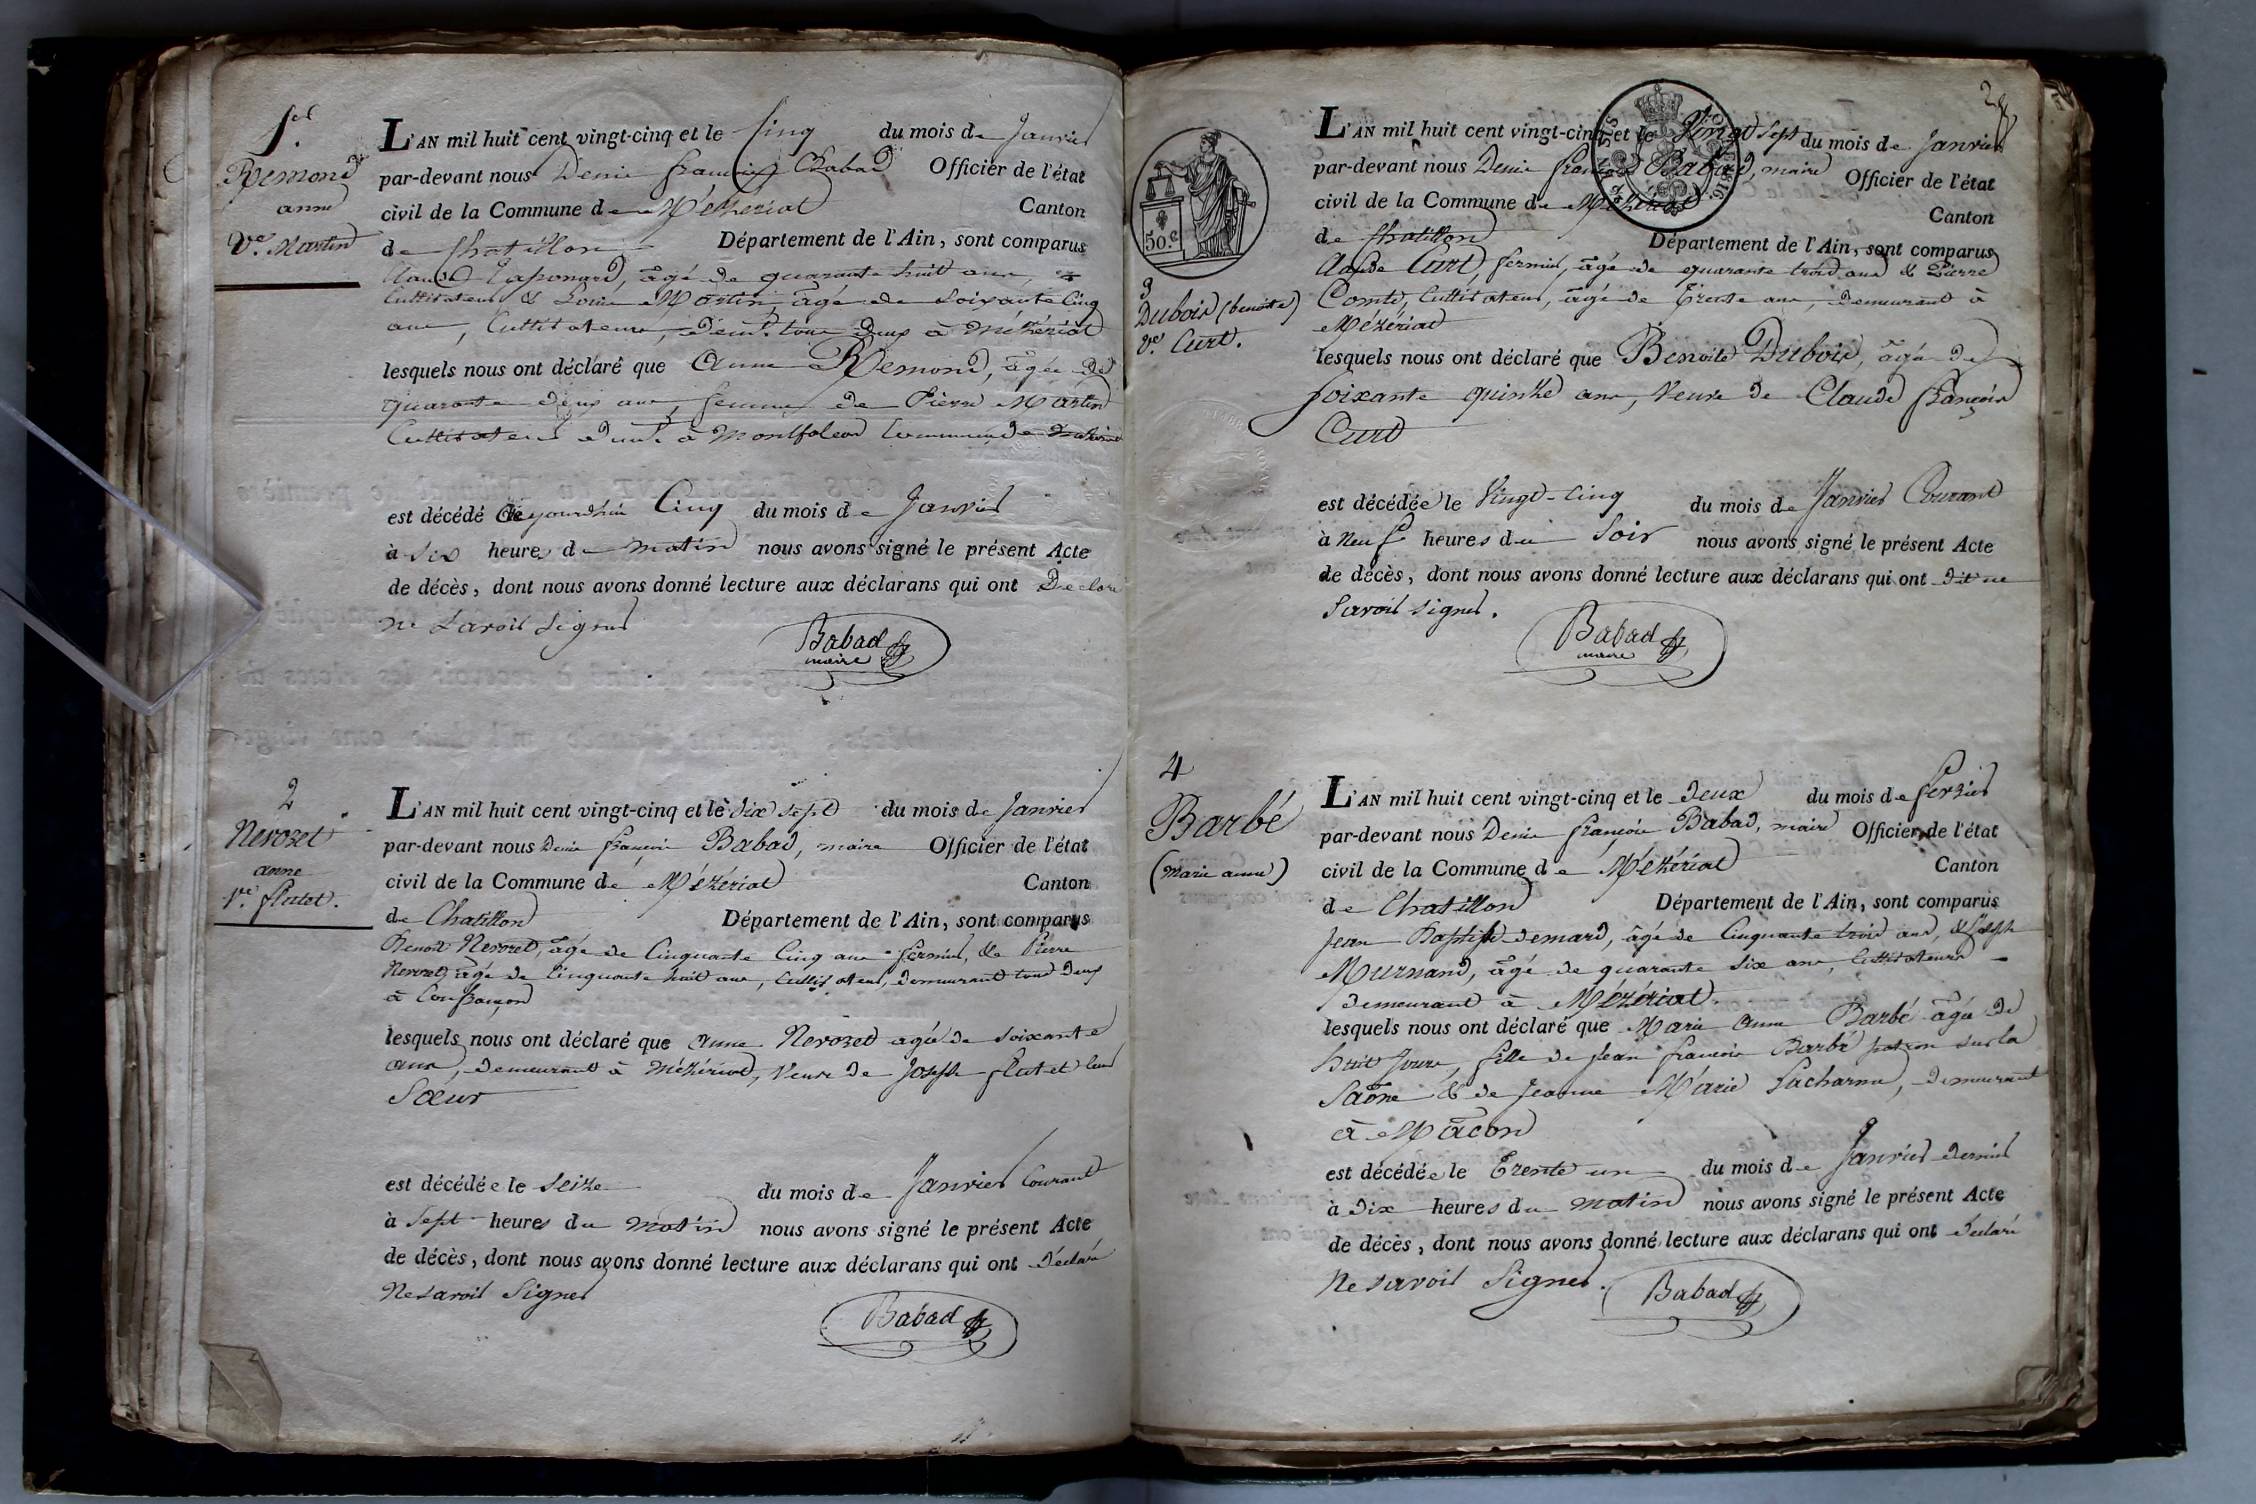 1.er
Remond
anne
Ve. Martin
L'AN mil huit cent vingt-cinq et le Cinq du mois de Janvier
par-devant nous Denis françois Babad Officier de l'état
civil de la Commune de Mézériat Canton
de Chatillon Département de l'Ain, sont comparus
Claude Taponard, âgé de quarante huit ans,
Cultivateur & Louis Martin, âgé de soixante Cinq
ans, Cultivateurs, demt. tous deux à Mézériat
lesquels nous ont déclaré que Anne Remond, âgée de
quarante deux ans, femme de Pierre Martin
Cultivateur demt. à Montfalcon Commune de
est décédé Cejourdhui Cinq du mois de Janvier
à Six heures de matin nous avons signé le présent Acte
de décès, dont nous avons donné lecture aux déclarans qui ont Déclaré
ne Savoir Signer
Babad
maire
2
Nerozet
anne
Ve. flutet.
L'AN mil huit cent vingt-cinq et le dix sept du mois de Janvier
par-devant nous Denis françois Babad, maire Officier de l'état
civil de la Commune de Mézériat Canton
de Chatillon Département de l'Ain, sont comparus
Benoit Nerozet, âgé de Cinquante Cinq ans fermier, & Pierre
Nerozet, âgé de Cinquante huit ans, Cultivateur, demeurant tous deux
à Confrançon
lesquels nous ont déclaré que anne Nerozet agée de Soixante
ans, demeurant à Mézériat, Veuve de Joseph flutet leur
Sœur
est décédée le Seize du mois de Janvier Courant
à Sept heures du matin nous avons signé le présent Acte
de décès, dont nous avons donné lecture aux déclarans qui ont déclaré
Ne Savoir Signer
Babad
50.c
3
Dubois (benoite)
Ve. Curt.
L'AN mil huit cent vingt-cinq et le Vingt Sept du mois de Janvier
par-devant nous Denis françois Babad, maire Officier de l'état
civil de la Commune de Mézériat Canton
de Chatillon Département de l'Ain, sont comparus
Claude Curt, fermier, âgé de quarante trois ans & Pierre
Comte, Cultivateur, âgé de trente ans, demeurant à
Mézériat
lesquels nous ont déclaré que Benoite Dubois, âgée de
Soixante quinze ans, Veuve de Claude françois
Curt
est décédée le Vingt-Cinq du mois de Janvier Courant
à neuf heures du Soir nous avons signé le présent Acte
de décès, dont nous avons donné lecture aux déclarans qui ont dit ne
Savoir signer.
Babad
maire
4
Barbé
(marie anne)
L'AN mil huit cent vingt-cinq et le deux du mois de fevrier
par-devant nous Denis françois Babad, maire Officier de l'état
civil de la Commune de Mézériat Canton
de Chatillon Département de l'Ain, sont comparus
Jean Baptiste demard, âgé de Cinquante trois ans, & Joseph
Murnand, âgé de quarante six ans, Cultivateurs
demeurant à Mézériat.
lesquels nous ont déclaré que Marie Anne Barbé âgée de
huit Jours, fille de Jean françois Barbé patron sur la
Saône & de Jeanne Marie Lacharme, demeurant
à Mâcon
est décédée le Trente un du mois de Janvier dernier
à Dix heures du matin nous avons signé le présent Acte
de décès, dont nous avons donné lecture aux déclarans qui ont déclaré
Ne Savoir Signer.
Babad